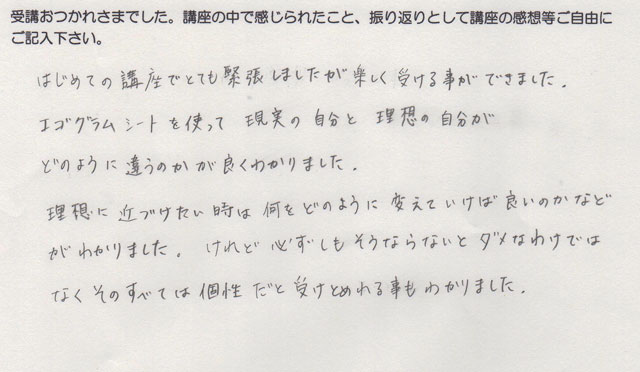 受講おつかれさまでした。講座の中で感じられたこと、振り返りとして講座の感想等ご自由に
ご記入下さい。
はじめての講座でとても緊張しましたが楽しく受ける事ができました。
エゴグラムシートを使って現実の自分と理想の自分が
どのように違うのかが良くわかりました。
理想に近づけたい時は何をどのように変えていけば良いのかなど
がわかりました。けれど必ずしもそうならないとダメなわけでは
なくそのすべては個性だと受けとめれる事もわかりました。